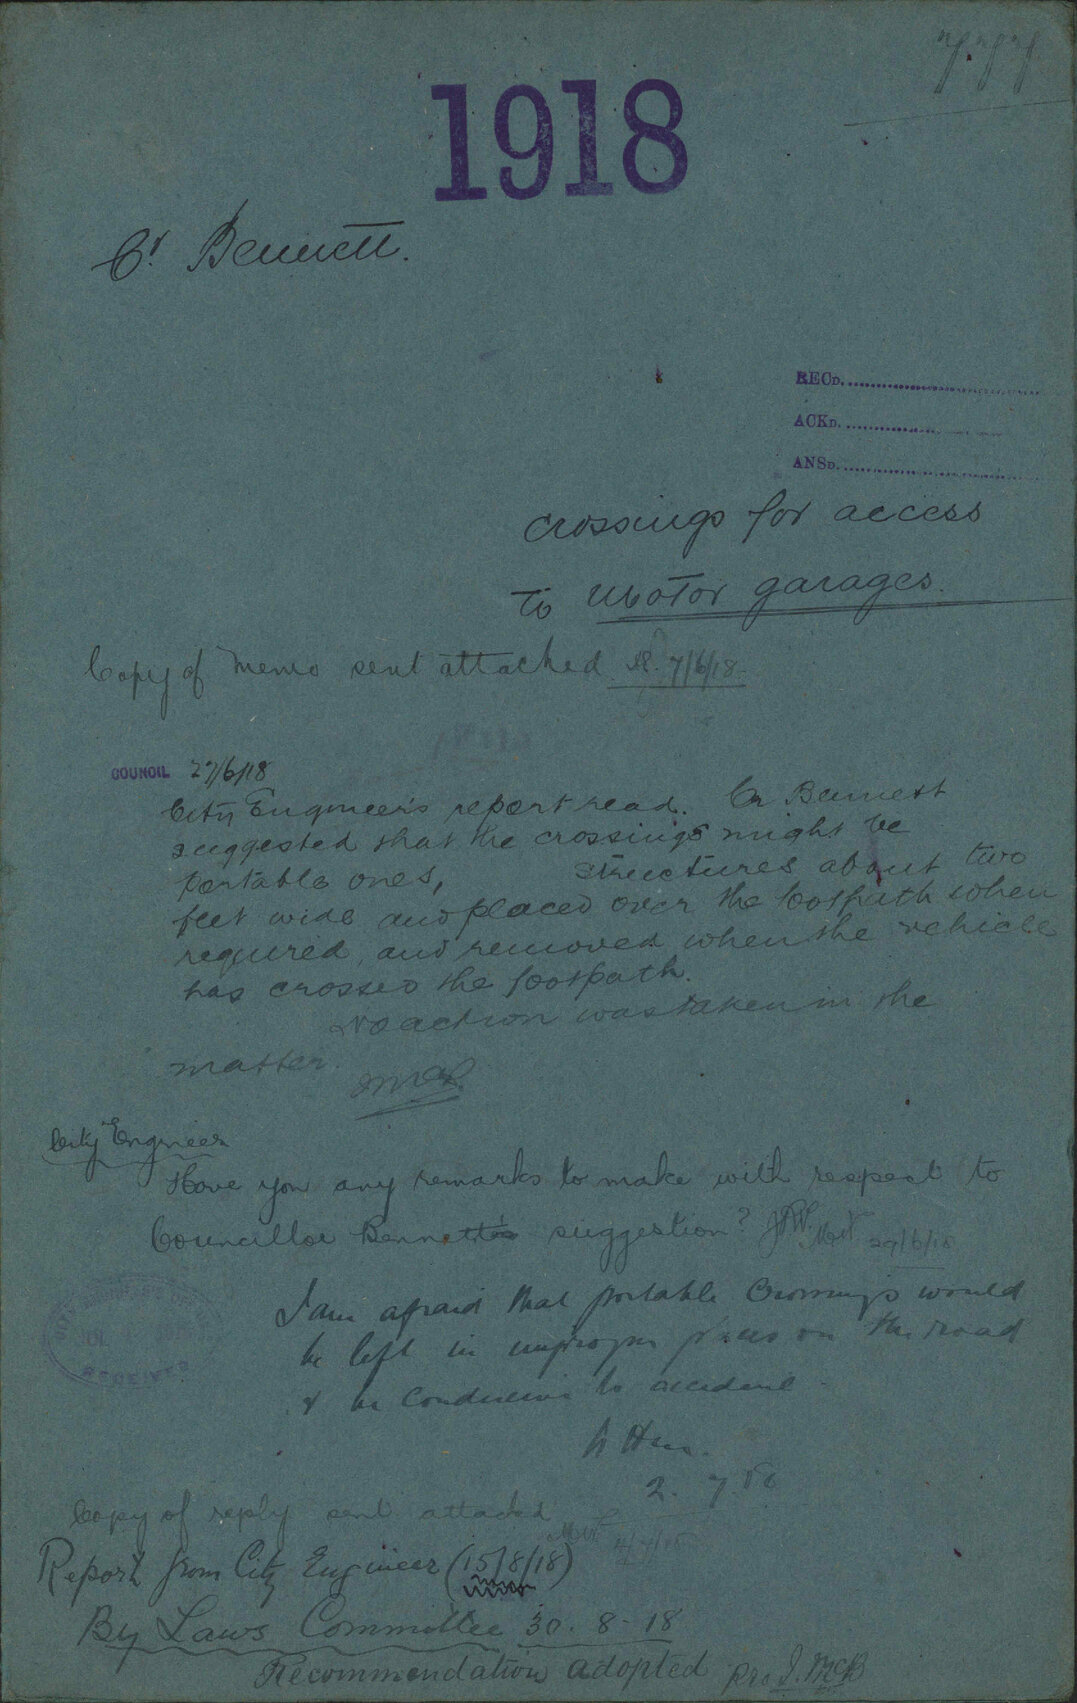 1918
Cr. Bennett.
RECD.
ACKD.
ANSD.
Crossings for access
to Motor garages.
Copy of Memo sent attached 7/6/18
COUNCIL 27/6/18
City Engineer's report read. Cr Bennett
suggested that the crossings might be
portable ones, structures about two
feet wide and placed over the footpath when
required, and removed when the vehicle
has crossed the footpath.
No action was taken in the
matter.
City Engineer
Have you any remarks to make with respect to
Councillor Bennett's suggestion? 29/6/18
I am afraid that portable Crossings would
be left in improper places on the road
& be conducive to accident.
2.7.18
Copy of reply sent attached 4/7/18
Report from City Engineer (15/8/18)
By Laws Committee 30.8-18
Recommendation adopted pro J. McB
RECEIVED